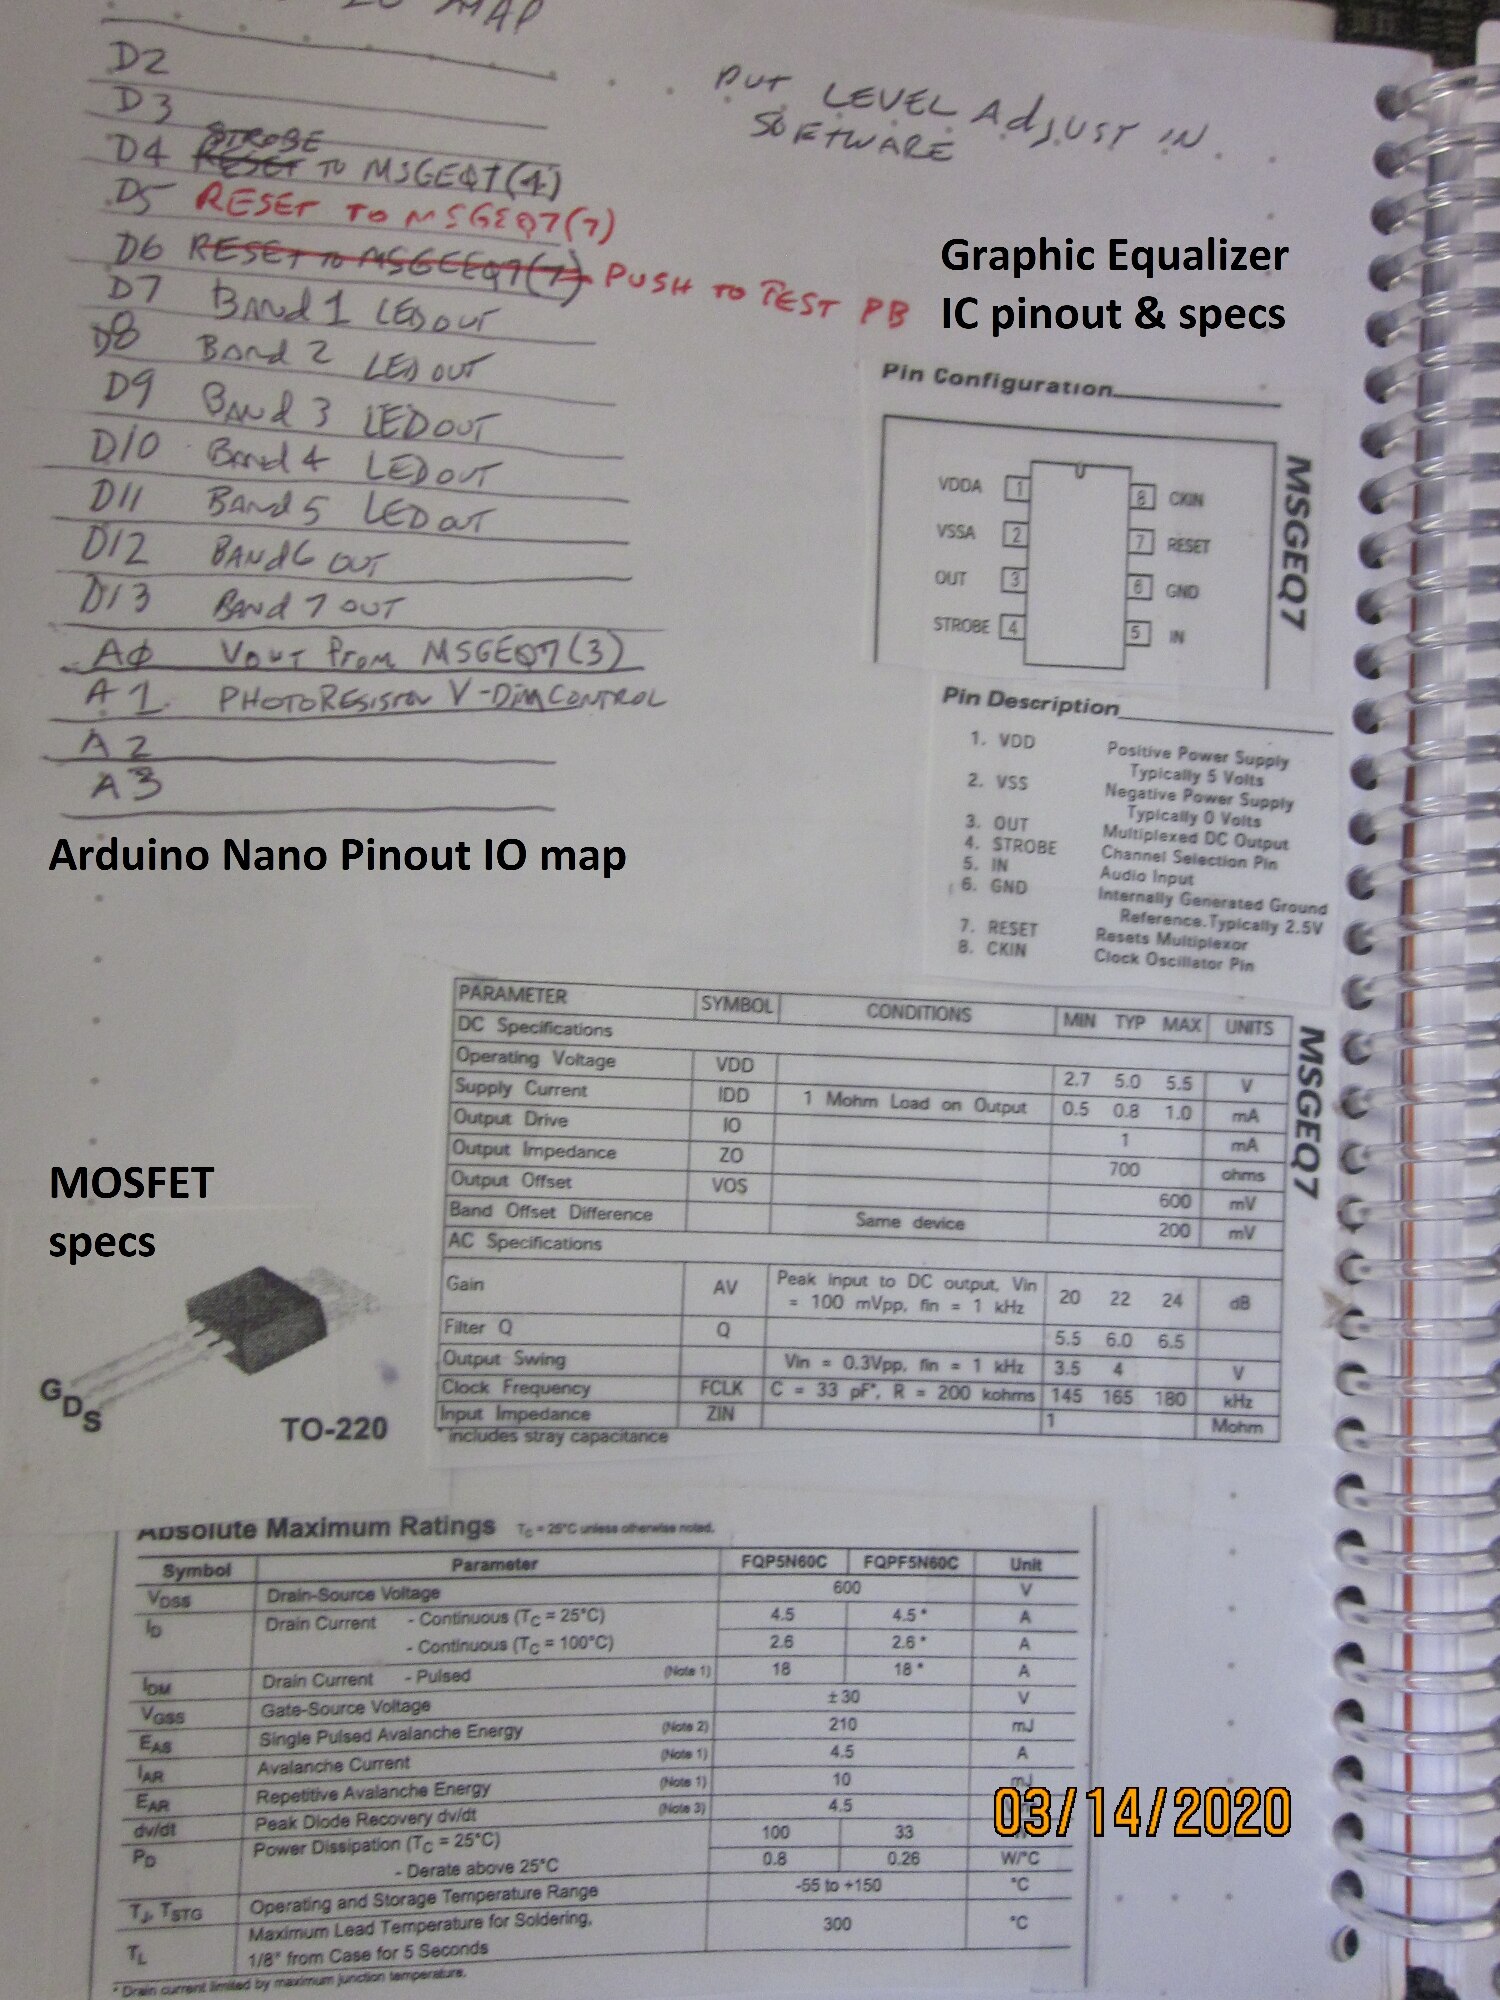 IO MAP
D2
D3
PUT LEVEL AdJUST IN
SOFTWARE
D4 RESET STROBE TO MSGEQ7(4)
D5 RESET TO MSGEQ7(7)
D6 RESET TO MSGEEQ7(7) PUSH TO TEST PB
D7 Band 1 LED OUT
D8 Band 2 LED OUT
D9 Band 3 LED OUT
D10 Band 4 LED OUT
D11 Band 5 LED OUT
D12 BAND6 OUT
D13 Band 7 OUT
A0 VOUT From MSGEQ7(3)
A1. PHOTORESISTOR V-DIMCONTROL
A2
A3
Arduino Nano Pinout IO map
Graphic Equalizer
IC pinout & specs
Pin Configuration
MSGEQ7
VDDA 1 8 CKIN
VSSA 2 7 RESET
OUT 3 6 GND
STROBE 4 5 IN
Pin Description
1. VDD Positive Power Supply
Typically 5 Volts
2. VSS Negative Power Supply
Typically 0 Volts
3. OUT Multiplexed DC Output
4. STROBE Channel Selection Pin
5. IN Audio Input
6. GND Internally Generated Ground
Reference.Typically 2.5V
7. RESET Resets Multiplexor
8. CKIN Clock Oscillator Pin
PARAMETER SYMBOL CONDITIONS MIN TYP MAX UNITS
DC Specifications
Operating Voltage VDD 2.7 5.0 5.5 V
Supply Current IDD 1 Mohm Load on Output 0.5 0.8 1.0 mA
Output Drive IO 1 mA
Output Impedance ZO 700 ohms
Output Offset VOS 600 mV
Band Offset Difference Same device 200 mV
AC Specifications
Gain AV Peak input to DC output, Vin
= 100 mVpp, fin = 1 kHz 20 22 24 dB
Filter Q Q 5.5 6.0 6.5
Output Swing Vin = 0.3Vpp, fin = 1 kHz 3.5 4 V
Clock Frequency FCLK C = 33 pF*, R = 200 kohms 145 165 180 kHz
Input Impedance ZIN 1 Mohm
* includes stray capacitance
MSGEQ7
MOSFET
specs
G
D
S
TO-220
Absolute Maximum Ratings TC = 25°C unless otherwise noted.
Symbol Parameter FQP5N60C FQPF5N60C Unit
VDSS Drain-Source Voltage 600 V
ID Drain Current - Continuous (TC = 25°C) 4.5 4.5 * A
- Continuous (TC = 100°C) 2.6 2.6 * A
IDM Drain Current - Pulsed (Note 1) 18 18 * A
VGSS Gate-Source Voltage ± 30 V
EAS Single Pulsed Avalanche Energy (Note 2) 210 mJ
IAR Avalanche Current (Note 1) 4.5 A
EAR Repetitive Avalanche Energy (Note 1) 10 mJ
dv/dt Peak Diode Recovery dv/dt (Note 3) 4.5
PD Power Dissipation (TC = 25°C) 100 33
- Derate above 25°C 0.8 0.26 W/°C
TJ, TSTG Operating and Storage Temperature Range -55 to +150 °C
TL Maximum Lead Temperature for Soldering,
1/8" from Case for 5 Seconds 300 °C
* Drain current limited by maximum junction temperature.
03/14/2020